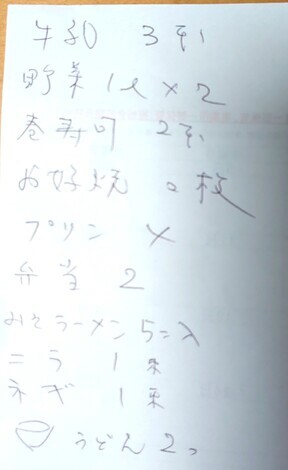 牛乳 3本
野菜 1l×2
巻寿司 2本
お好焼 2枚
プリン ×
弁当 2
みそラーメン 5コ入
ニラ 1束
ネギ 1束
うどん 2つ